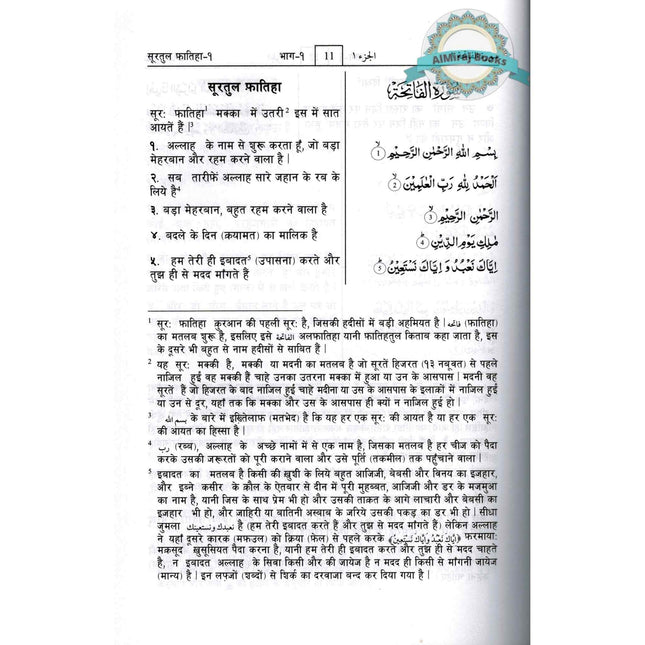 AlMiraj Books
सूरतुल फातिहा-१ भाग-१ 11 الجزء ١
सूरतुल फ़ातिहा
सूर: फातिहा¹ मक्का में उतरी² इस में सात
आयतें हैं |³
१. अल्लाह के नाम से शुरू करता हूँ, जो बड़ा
मेहरबान और रहम करने वाला है |
२. सब तारीफें अल्लाह सारे जहान के रब के
लिये है⁴
३. बड़ा मेहरबान, बहुत रहम करने वाला है
४. बदले के दिन (क़यामत) का मालिक है
५. हम तेरी ही इबादत⁵ (उपासना) करते और
तुझ ही से मदद मांगते हैं
سُورَةُ الْفَاتِحَةِ
بِسْمِ اللّٰهِ الرَّحْمٰنِ الرَّحِيْمِ 1
اَلْحَمْدُ لِلّٰهِ رَبِّ الْعٰلَمِيْنَ 2
الرَّحْمٰنِ الرَّحِيْمِ 3
مٰلِكِ يَوْمِ الدِّيْنِ 4
اِيَّاكَ نَعْبُدُ وَ اِيَّاكَ نَسْتَعِيْنُ 5
¹ सूर: फातिहा क़ुरआन की पहली सूर: है, जिसकी हदीसों में बड़ी अहमियत है | فاتحه (फातिहा)
का मतलब शुरू है, इसलिए इसे الفاتحة अलफातिहा यानी फातिहतुल किताब कहा जाता है, इस
के दूसरे भी बहुत से नाम हदीसों से साबित हैं |
² यह सूर: मक्की है, मक्की या मदनी का मतलब है जो सूरतें हिजरत (१३ नबूवत) से पहले
नाजिल हुई वह मक्की हैं चाहे उनका उतरना मक्का में हुआ या उन के आसपास | मदनी वह
सूरतें हैं जो हिजरत के बाद नाजिल हुई चाहे मदीना या उस के आसपास के इलाक़ों में नाजिल हुई
या उन से दूर, यहाँ तक कि मक्का और उस के आसपास ही क्यों न नाजिल हुई हो |
³ بسم الله के बारे में इख़्तेलाफ (मतभेद) है कि यह हर एक सूर: की आयत है या हर एक सूर:
की आयत का हिस्सा है |
⁴ رب (रब्ब), अल्लाह के अच्छे नामों में से एक नाम है, जिसका मतलब है हर चीज को पैदा
करके उसकी जरूरतों को पूरी कराने वाला और उसे पूर्ति (तकमील) तक पहुँचाने वाला |
⁵ इबादत का मतलब है किसी की ख़ुशी के लिये बहुत आजिजी, बेबसी और विनय का इजहार,
और इब्ने कसीर के क़ौल के ऐतबार से दीन में पूरी मुहब्बत, आजिजी और डर के मजमुआ
का नाम है, यानी जिस के साथ प्रेम भी हो और उसकी ताक़त के आगे लाचारी और बेबसी का
इजहार भी हो, और जाहिरी या बातिनी अस्बाब के जरिये उसकी पकड़ का डर भी हो | सीधा
जुमला نعبدك ونستعينك है (हम तेरी इबादत करते हैं और तुझ से मदद मांगते हैं) लेकिन अल्लाह
ने यहाँ दूसरे कारक (मफउल) को क्रिया (फेल) से पहले करके ﴿إِيَّاكَ نَعْبُدُ وَإِيَّاكَ نَسْتَعِينُ﴾ फरमाया:
मक़सूद ख़ुसूसियत पैदा करना है, यानी हम तेरी ही इबादत करते और तुझ ही से मदद चाहते
है, न इबादत अल्लाह के सिवा किसी और की जायेज है न मदद ही किसी से मांगनी जायेज
(मान्य) है | इन लफ़्जों (शब्दों) से शिर्क का दरवाजा बन्द कर दिया गया है |